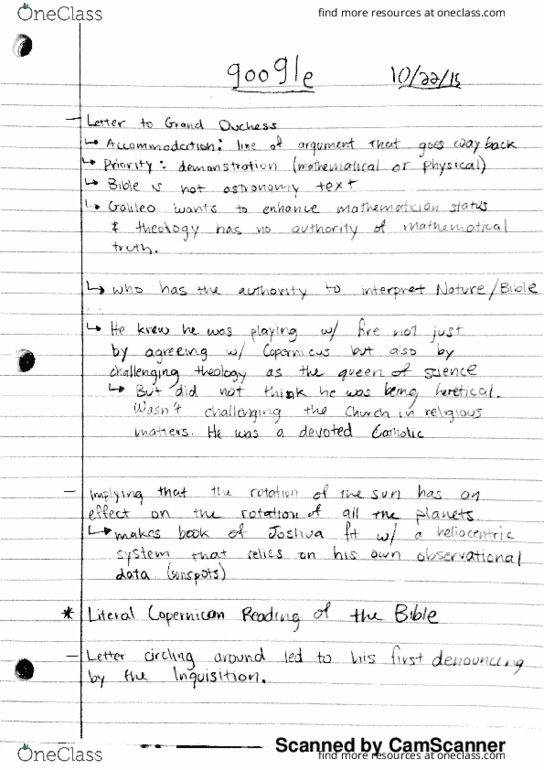 OneClass
find more resources at oneclass.com
google
10/22/18
- Letter to Grand Duchess
↳ Accommodation: line of argument that goes way back
↳ Priority: demonstration (mathematical or physical)
↳ Bible is not astronomy text
↳ Galileo wants to enhance mathematician status
& theology has no authority of mathematical
truth.
↳ who has the authority to interpret Nature/Bible
↳ He knew he was playing w/ fire not just
by agreeing w/ Copernicus but also by
challenging theology as the queen of science
↳ But did not think he was being heretical.
Wasn't challenging the Church in religious
matters. He was a devoted Catholic
- Implying that the rotation of the sun has an
effect on the rotation of all the planets.
↳ makes book of Joshua fit w/ a heliocentric
system that relies on his own observational
data (sunspots)
* Literal Copernican Reading of the Bible
- Letter circling around led to his first denouncing
by the Inquisition.
OneClass
Scanned by CamScanner
find more resources at oneclass.com